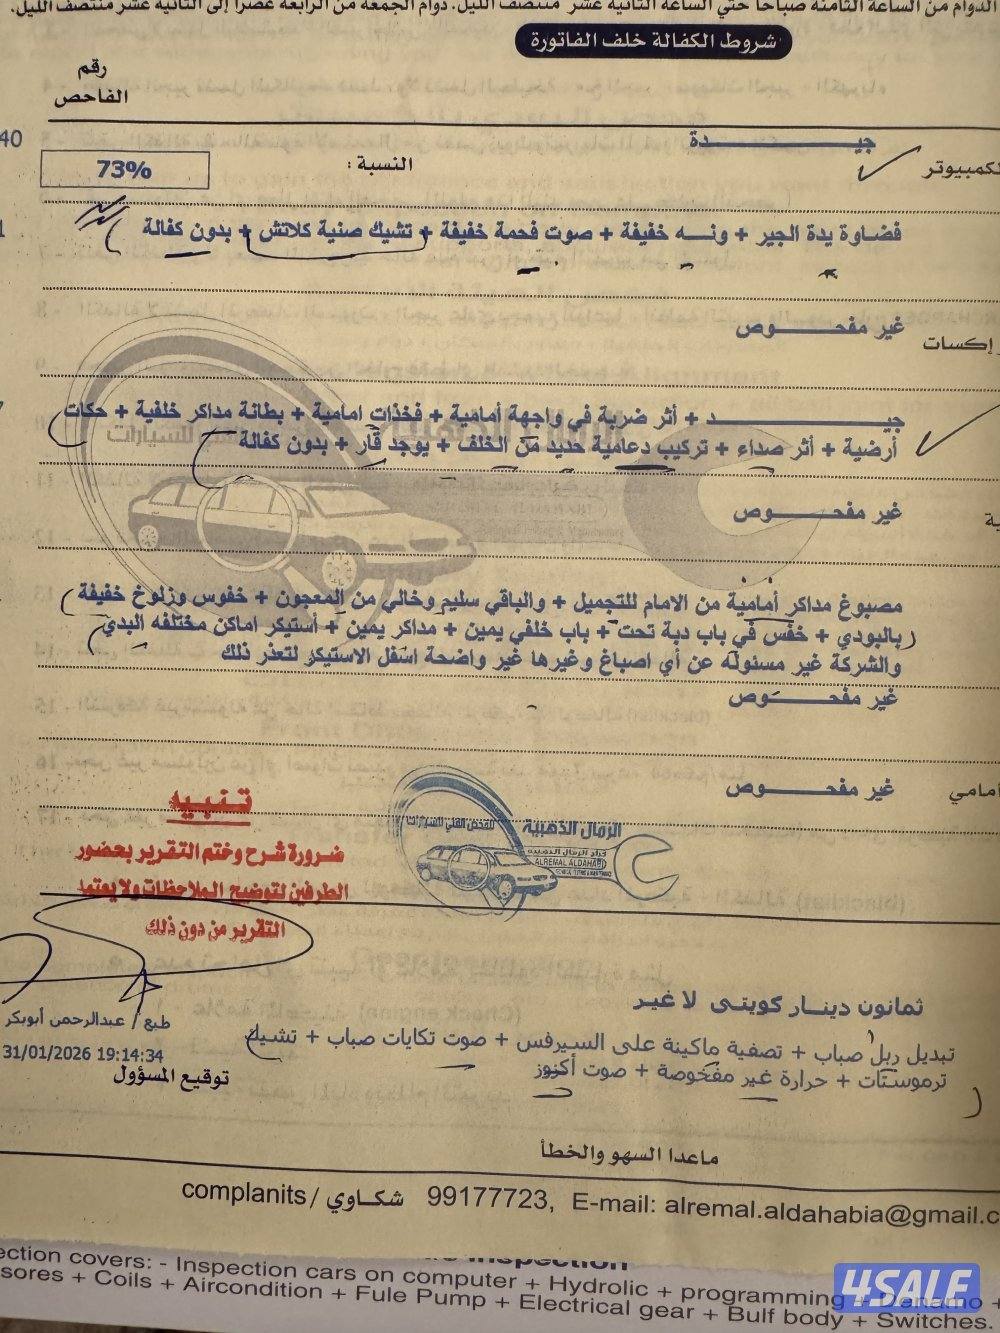 الدوام من الساعة الثامنة صباحاً حتي الساعة الثانية عشر منتصف الليل. دوام الجمعة من الرابعة عصراً إلى الثانية عشر منتصف الليل.
شروط الكفالة خلف الفاتورة
رقم
الفاحص
40
جيـــــــدة
لكمبيوتر
النسبة :
73%
فضاوة يدة الجير + ونـــه خفيفة + صوت فحمة خفيفة + تشيك صنية كلاتش + بدون كفالة
غير مفحـــــوص
إكسات
جيـــــــد + أثر ضربة في واجهة أمامية + فخذات امامية + بطانة مداكر خلفية + حكات
أرضية + أثر صداء + تركيب دعامية حديد من الخلف + يوجد قار + بدون كفالة
غير مفحـــــوص
مصبوغ مداكر أمامية من الامام للتجميل + والباقي سليم وخالي من المعجون + خفوس وزلوخ خفيفة
بالبودي + خفس في باب دبة تحت + باب خلفي يمين + مداكر يمين + أستيكر اماكن مختلفه البدي
والشركة غير مسئوله عن أي اصباغ وغيرها غير واضحة اسفل الاستيكر لتعذر ذلك
غير مفحـــــوص
أمامي
غير مفحـــــوص
تنبيه
ضرورة شرح وختم التقرير بحضور
الطرفين لتوضيح الملاحظات ولا يعتمد
التقرير من دون ذلك
الرمال الذهبية
للفحص الفني للسيارات
كراج الرمال الذهبية
ALREMAL ALDAHABI
ثمانون دينار كويتى لا غير
طبع / عبدالرحمن أبوبكر
31/01/2026 19:14:34
توقيع المسؤول
تبديل ربل صباب + تصفية ماكينة على السيرفس + صوت تكايات صباب + تشيك
ترموستات + حرارة غير مفحوصة + صوت أكزوز
ماعدا السهو والخطأ
complanits / شكاوي 99177723, E-mail: alremal.aldahabia@gmail.c
ection covers: - Inspection cars on computer + Hydrolic + programming + Denamo +
sores + Coils + Aircondition + Fule Pump + Electrical gear + Bulf body + Switches.
4SALE